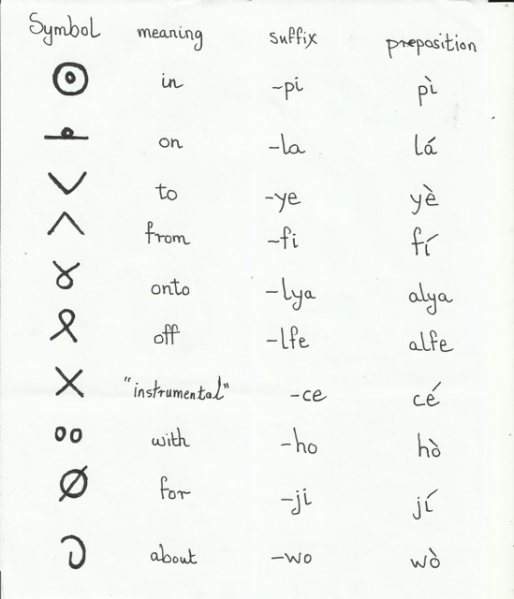 Symbol meaning suffix preposition
in -pi pì
on -la lá
to -ye yè
from -fi fí
onto -lya alya
off -lfe alfe
"instrumental" -ce cé
with -ho hò
for -ji jí
about -wo wò